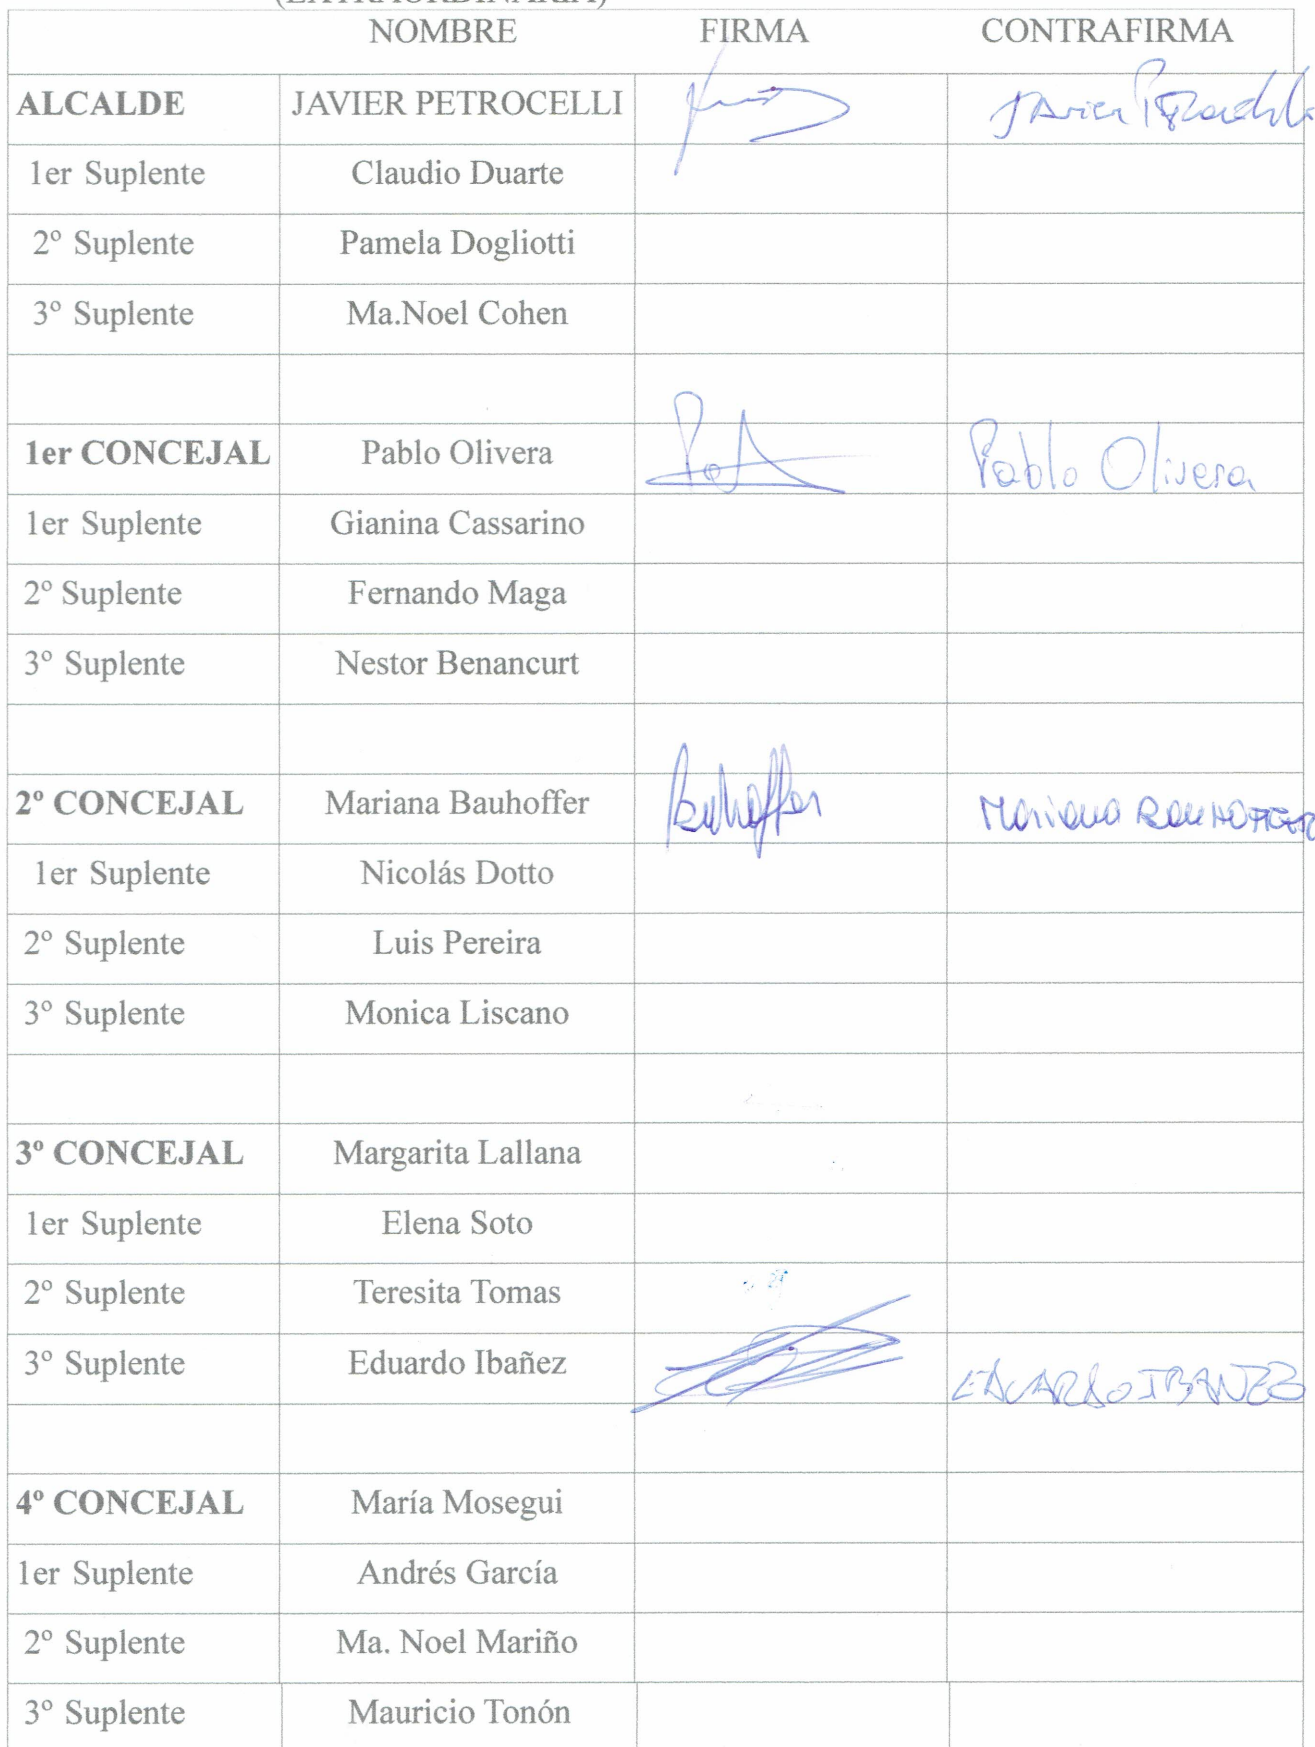 (EXTRAORDINARIA)
NOMBRE FIRMA CONTRAFIRMA
ALCALDE JAVIER PETROCELLI Javier Petrocelli
1er Suplente Claudio Duarte
2º Suplente Pamela Dogliotti
3º Suplente Ma.Noel Cohen
1er CONCEJAL Pablo Olivera Pablo Olivera
1er Suplente Gianina Cassarino
2º Suplente Fernando Maga
3º Suplente Nestor Benancurt
2º CONCEJAL Mariana Bauhoffer Bauhoffer Mariana BAUHOFFER
1er Suplente Nicolás Dotto
2º Suplente Luis Pereira
3º Suplente Monica Liscano
3º CONCEJAL Margarita Lallana
1er Suplente Elena Soto
2º Suplente Teresita Tomas
3º Suplente Eduardo Ibañez EDUARDO IBANEZ
4º CONCEJAL María Mosegui
1er Suplente Andrés García
2º Suplente Ma. Noel Mariño
3º Suplente Mauricio Tonón